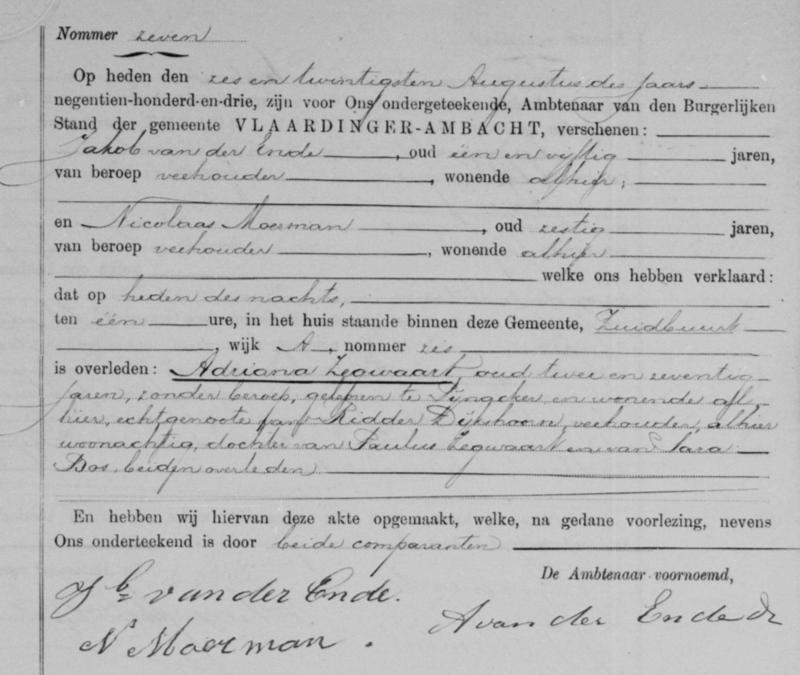 Nommer zeven
Op heden den zes en twintigsten Augustus des jaars
negentien-honderd-en-drie, zijn voor Ons ondergeteekende, Ambtenaar van den Burgerlijken
Stand der gemeente VLAARDINGER-AMBACHT, verschenen:
Jakob van der Ende, oud één en vijftig jaren,
van beroep veehouder, wonende alhier,
en Nicolaas Moerman, oud zestig jaren,
van beroep veehouder, wonende alhier
welke ons hebben verklaard:
dat op heden des nachts,
ten één ure, in het huis staande binnen deze Gemeente, Zuidbuurt
, wijk A, nommer zes
is overleden: Adriana Zegwaart, oud twee en zeventig
jaren, zonder beroep, geboren te Pijnacker en wonende al-
hier, echtgenoote van Ridder Dijkshoorn, veehouder, alhier
woonachtig, dochter van Paulus Zegwaart en van Sara
Bos, beiden overleden.
En hebben wij hiervan deze akte opgemaakt, welke, na gedane voorlezing, nevens
Ons onderteekend is door beide comparanten
De Ambtenaar voornoemd,
van der Ende.
A van der Ende
N Moerman.